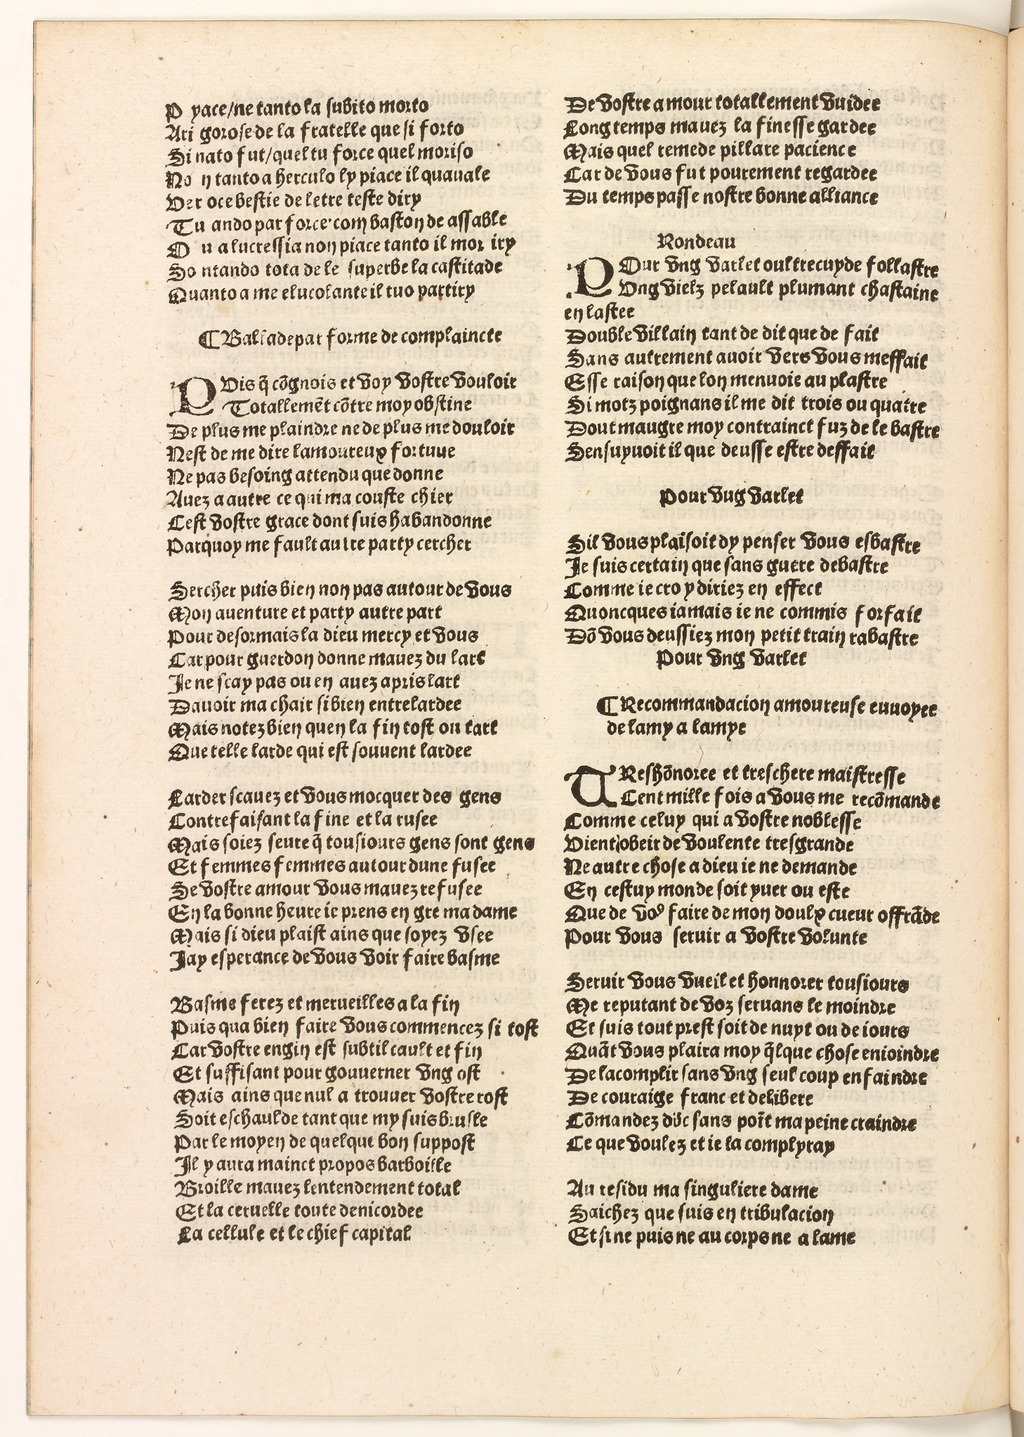 P yace/ne tanto la subito morto
Ari gorose de la fratelle que si forto
Si nato fut/quel tu force quel moriso
No n tanto a herculo ly piace il quauale
Ver oce bestie de letre teste diry
Tu ando par force com baston de assable
O u a lucressia non piace tanto il mor iry
So ntando tota de le superbe la castitade
Quanto a me elucolante il tuo partiry
¶ Ballade par forme de complaincte
PVis q̃ cõgnois et voy vostre vouloir
Totallemẽt cõtre moy obstine
De plus me plaindre ne de plus me douloir
Nest de me dire lamoureux fortune
Ne pas besoing attendu que donne
Auez a autre ce qui ma couste chier
Cest vostre grace dont suis habandonne
Parquoy me fault aultre party cercher
Sercher puis bien non pas autour de vous
Mon auenture et party autre part
Pour desormais la dieu mercy et vous
Car pour guerdon donne mauez du lart
Je ne scay pas ou en auez apris lart
Dauoir ma chair si bien entrelardee
Mais notez bien quen la fin tost ou tart
Que telle larde qui est souuent lardee
Larder scauez et vous mocquer des gens
Contrefaisant la fine et la rusee
Mais soiez seure q̃ tousiours gens sont gens
Et femmes femmes autour dune fusee
Se vostre amour vous mauez refusee
En la bonne heure ie prens en gre ma dame
Mais si dieu plaist ains que soyez vsee
Jay esperance de vous voir faire basme
Basme ferez et merueilles a la fin
Puis qua bien faire vous commencez si tost
Car vostre engin est subtil cault et fin
Et suffisant pour gouuerner vng ost
Mais ains que nul a trouuer vostre rost
Soit eschaulde tant que my suis brusle
Par le moyen de quelque bon suppost
Il y aura mainct propos barboille
Broille mauez lentendement total
Et la ceruelle toute denicordee
La cellule et le chief capital
De vostre amour totallement vuidee
Long temps mauez la finesse gardee
Mais quel remede pillare pacience
Car de vous fut pourement regardee
Du temps passe nostre bonne alliance
Rondeau
POur vng varlet oultrecuyde follastre
Vng vielz pelault plumant chastaine
en lastee
Double villain tant de dit que de fait
Sans aultrement auoir vers vous meffait
Esse raison que lon menuoie au plastre
Si motz poignans il me dit trois ou quatre
Dout maugre moy contrainct fuz de le bastre
Sensuyuoit il que deusse estre deffait
Pour vug varlet
Sil vous plaisoit dy penser vous esbastre
Je suis certain que sans guere debastre
Comme ie croy diriez en effect
Quoncques iamais ie ne commis forfait
Dõ vous deussiez mon petit train rabastre
Pour vng varlet
¶ Recommandacion amoureuse enuoyee
de lamy a lamye
TReshõnoree et treschere maistresse
Cent mille fois a vous me recõmande
Comme celuy qui a vostre noblesse
Vient obeir de voulente tresgrande
Ne autre chose a dieu ie ne demande
En cestuy monde soit yuer ou este
Que de voꝰ faire de mon doulx cueur offrãde
Pour vous seruir a vostre volunte
Seruir vous vueil et honnorer tousiours
Me reputant de voz seruans le moindre
Et suis tout prest soit de nuyt ou de iours
Quãt vous plaira moy q̃lque chose enioindre
De lacomplir sans vng seul coup enfaindre
De couraige franc et delibere
Cõmandez dõc sans poĩt ma peine craindre
Ce que voulez et ie la complyray
Au residu ma singuliere dame
Saichez que suis en tribulacion
Et si ne puis ne au corps ne a lame